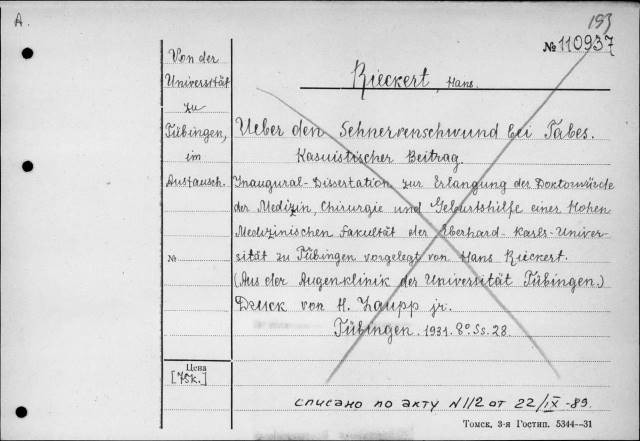 A.
193
№ 110937
Von der
Universität
zu
Tübingen,
im
Austausch.
№
Цена
[75k.]
Rieckert, Hans.
Ueber den Sehnervenschwund bei Tabes.
Kasuistischer Beitrag.
Inaugural-Dissertation zur Erlangung der Doktorwürde
der Medizin, Chirurgie und Geburtshilfe einer Hohen
Medizinischen Fakultät der Eberhard-Karls-Univer-
sität zu Tübingen vorgelegt von Hans Rieckert.
(Aus der Augenklinik der Universität Tübingen.)
Druck von H. Laupp jr.
Tübingen. 1931. 8° Ss. 28.
списано по акту N 112 от 22/IX-89.
Томск, 3-я Гостип. 5344—31